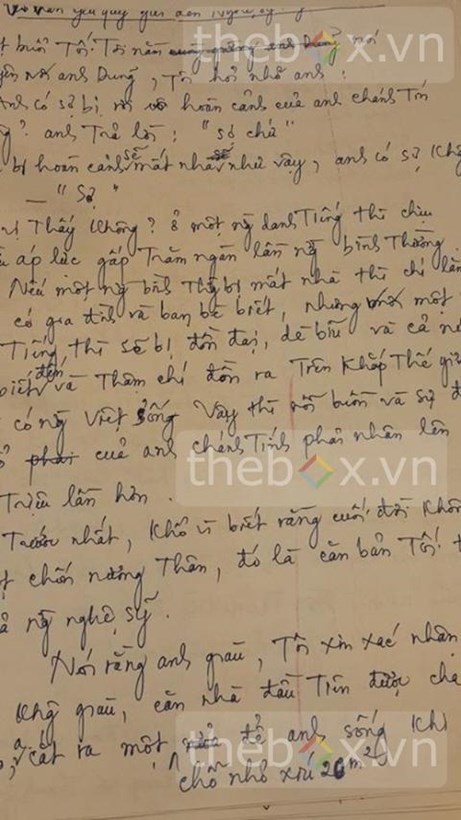 Vì thân yêu quý gửi đến Nghệ sỹ
thebox.vn
t buổi tối. Tôi nằm nói
yện với anh Dũng, Tôi hỏi nhỏ anh:
anh có sợ bị rơi vô hoàn cảnh của anh chánh Tín
g? anh Trả lời: "Sợ chứ"
bị hoàn cảnh sẽ mất nhà như vậy, anh có sợ khô
— "Sợ"
Thấy không? ở một ng danh Tiếng thì chịu
áp lực gấp Trăm ngàn lần ng bình Thường.
Nếu một ng bình Thg bị mất nhà thì chỉ
có gia đình và bạn bè biết, nhưng một
Tiếng thì sẽ bị đồn đại, dè bĩu và cả
biết đến và Thậm chí đồn ra Trên Khắp Thế giới
có ng Việt sống Vậy thì nỗi buồn và sự đ
của anh chánh Tính phải nhân lên
thebox.vn
Triệu lần hơn.
Trước nhất, khổ vì biết rằng cuối đời khôn
t chốn nương Thân, đó là căn bản Tối
ả ng nghệ sỹ.
Nói rằng anh giàu, Tôi xin xác nhận
khg giàu, căn nhà đầu Tiên được cha
cắt ra một nửa để anh sống khi
thebox.vn
chỗ nhỏ xíu 20m2